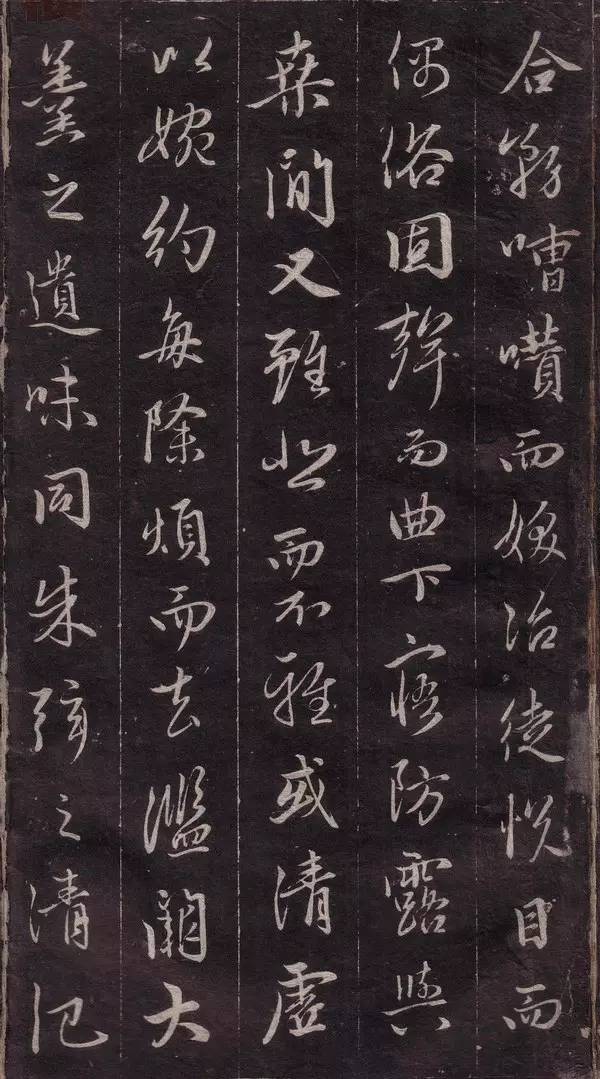 合務嘈囋而妖冶徒悦目而
偶俗固聲而曲下寤防露與
桒間又雖悲而不雅或清虛
以婉約每除煩而去濫闕大
羹之遺味同朱弦之清氾